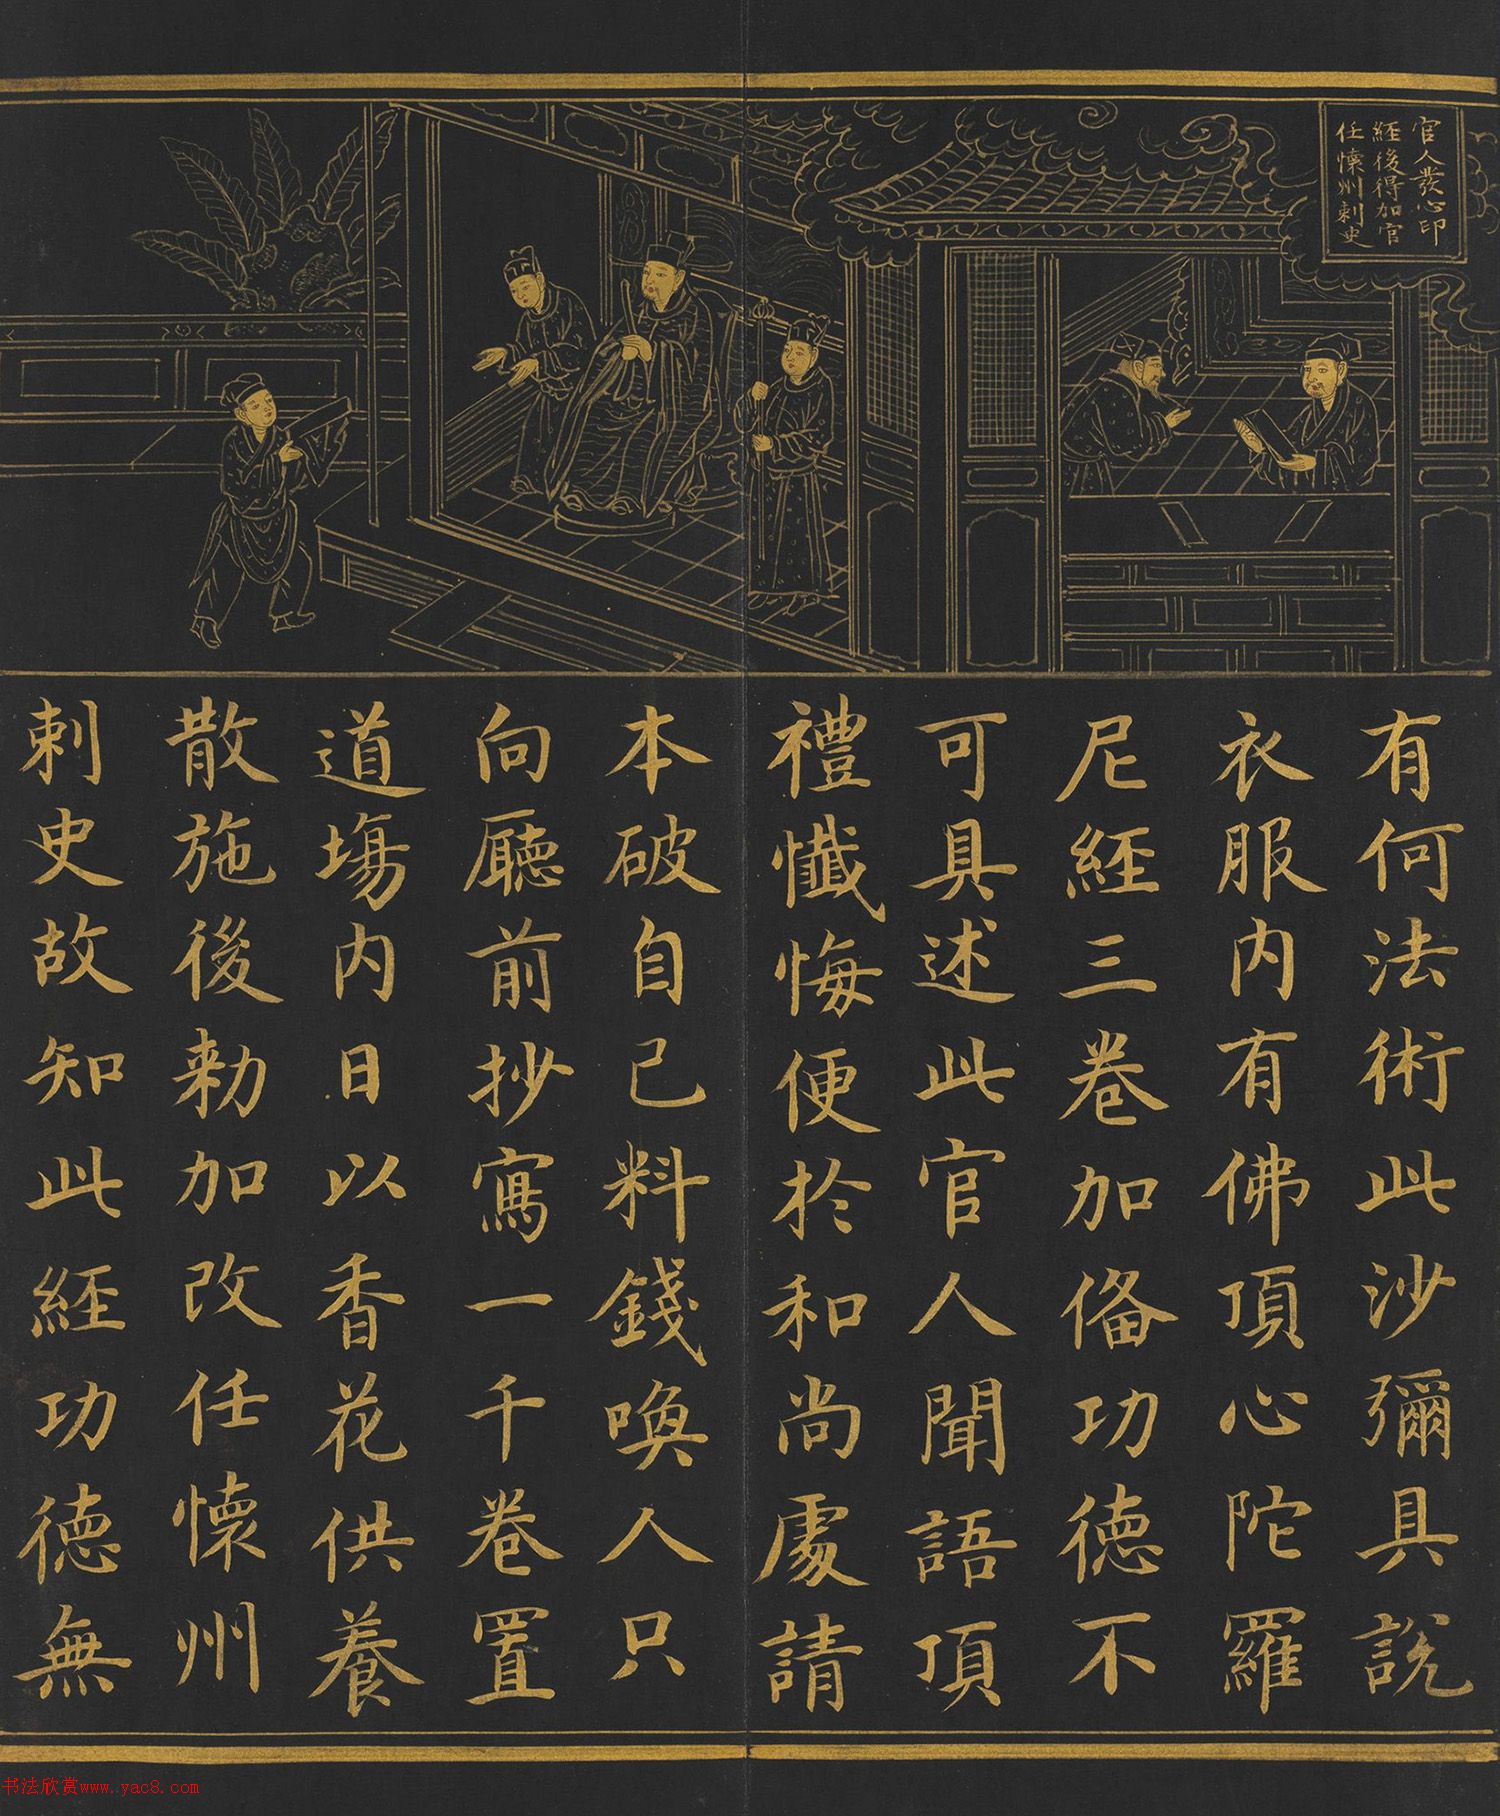 官人發心印
經後得加官
任懷州刺史
有何法術此沙彌具說
衣服内有佛頂心陀羅
尼經三卷加俻功德不
可具述此官人聞語頂
禮懺悔便於和尚處請
本破自己料錢喚人只
向廳前抄寫一千卷置
道場内日以香花供養
散施後勑加改任懷州
刺史故知此經功德無
书法欣赏www.yac8.com